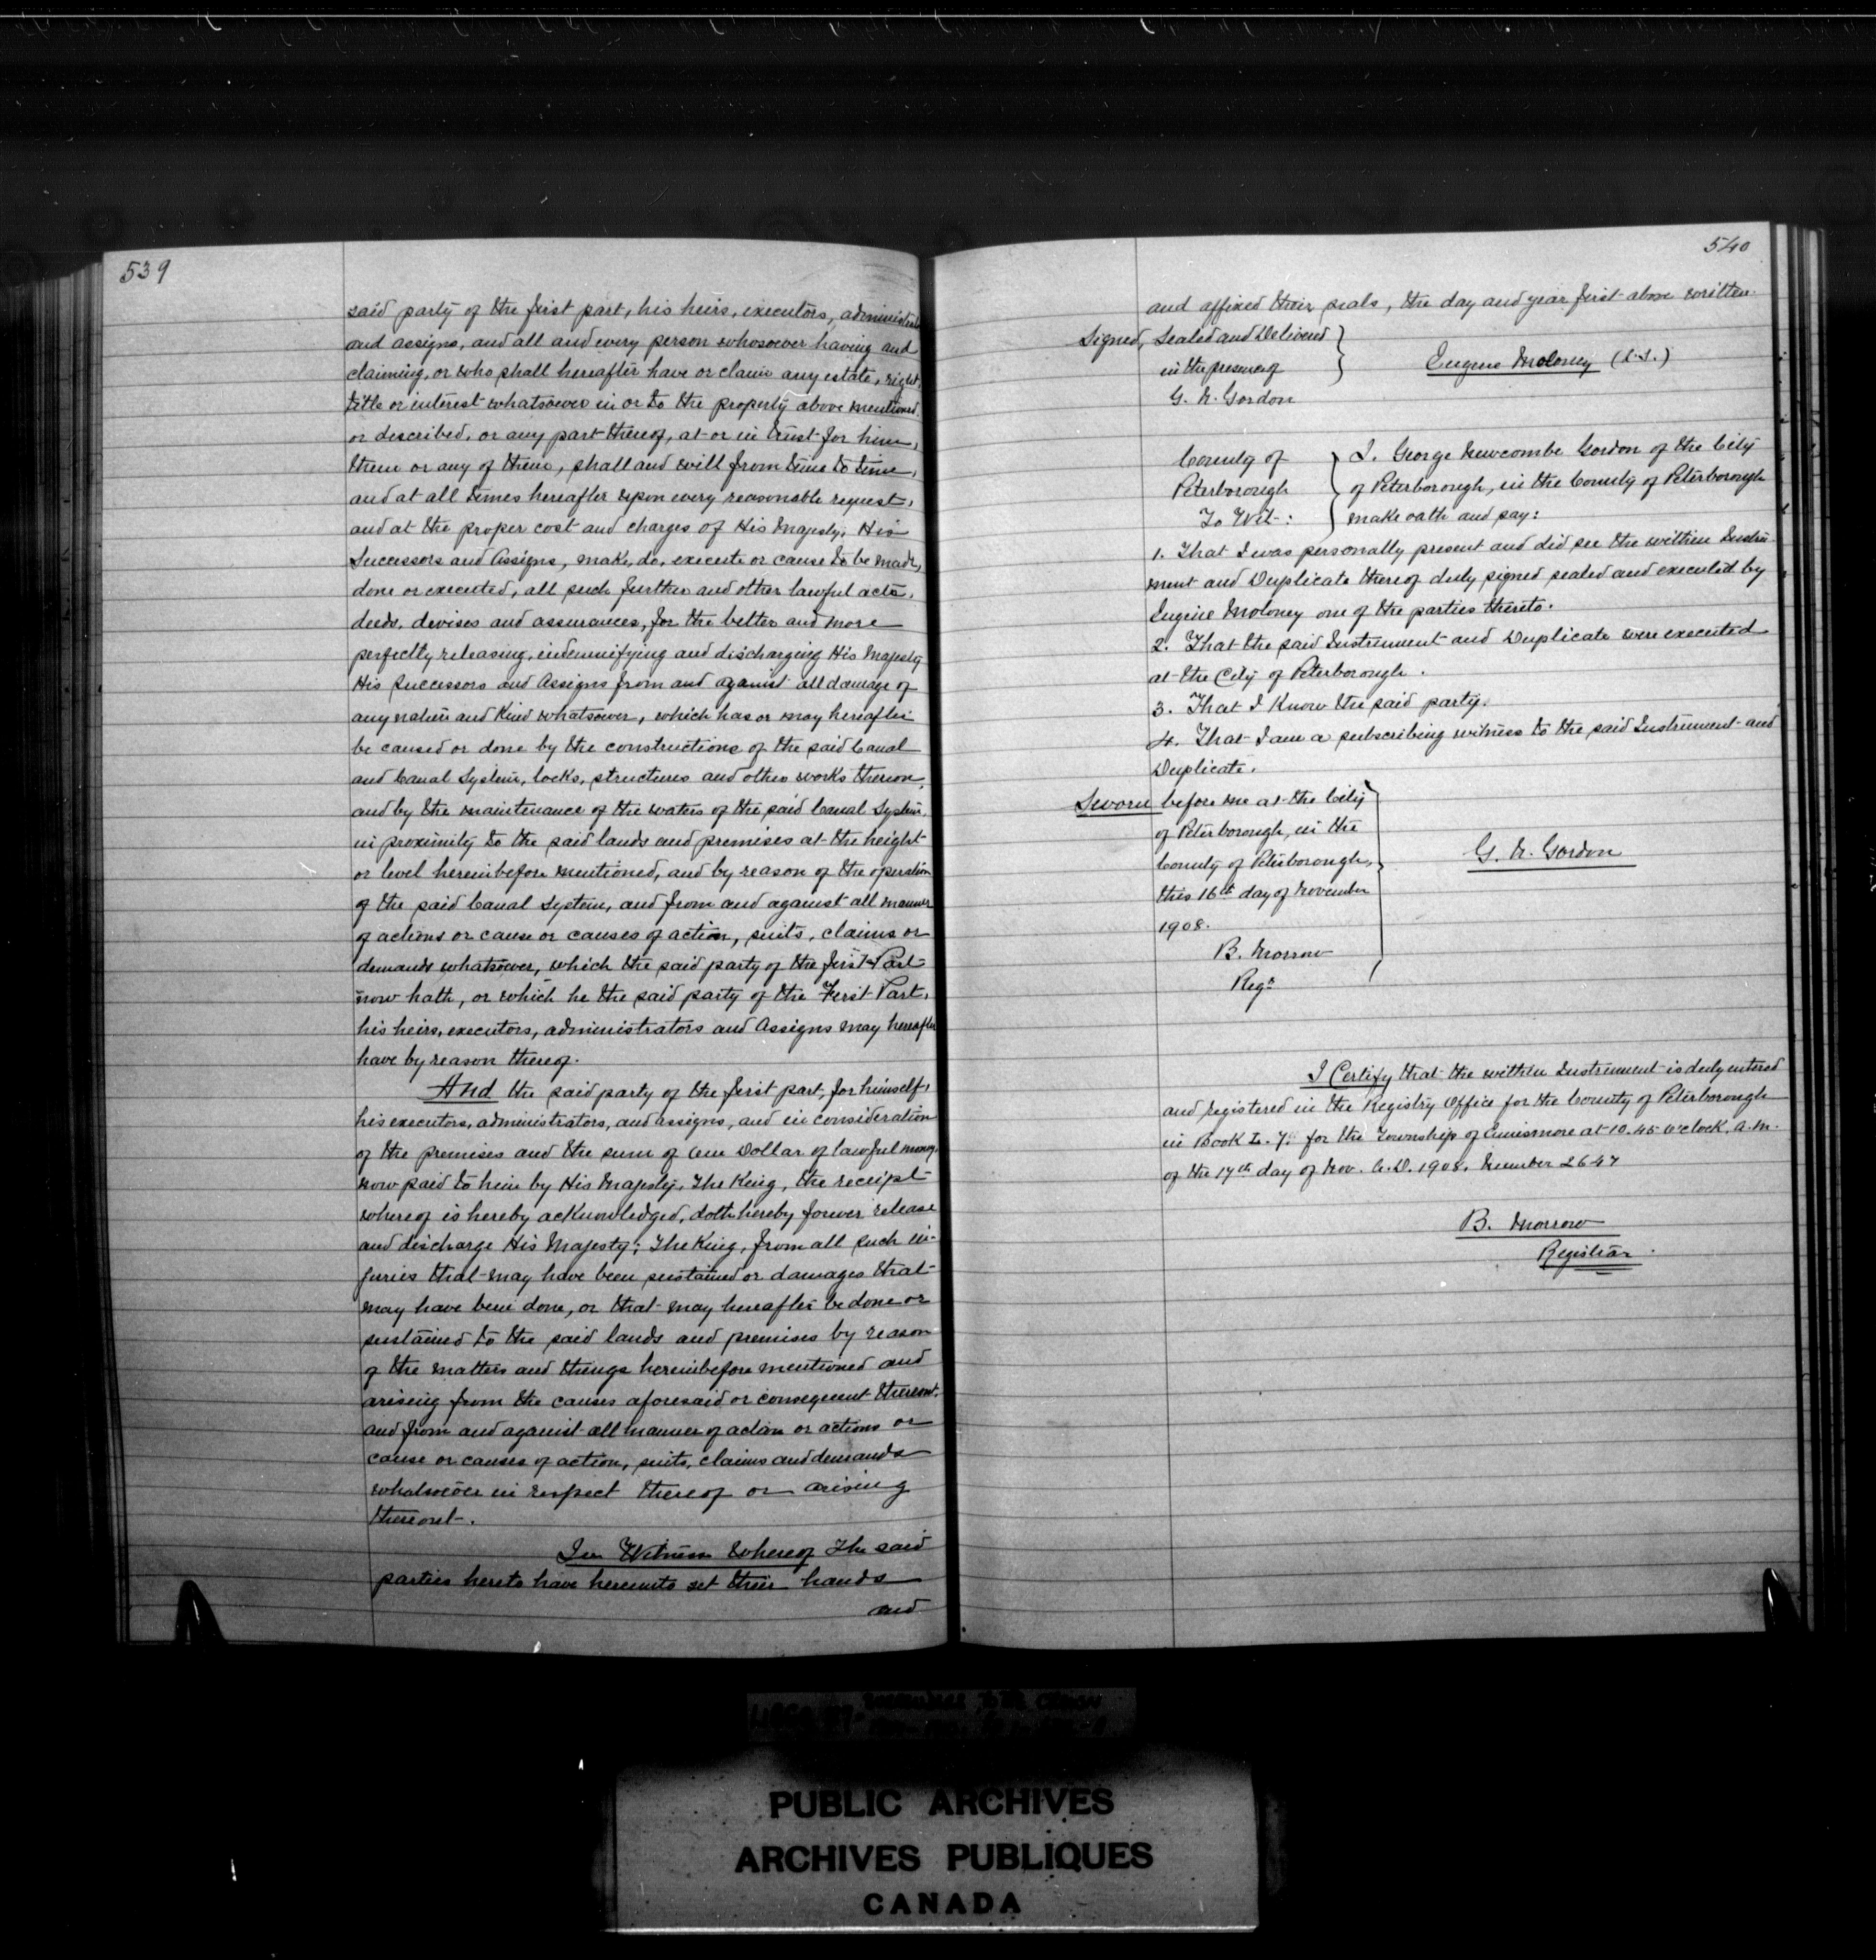 539
said party of the first part, his heirs, executors, administrators
and assigns, and all and every person whosoever having and
claiming, or who shall hereafter have or claim any estate, right,
title or interest whatsoever in or to the property above mentioned
or described, or any part thereof, at or in trust for him,
them or any of them, shall and will from time to time,
and at all times hereafter upon every reasonable request,
and at the proper cost and charges of His Majesty, His
Successors and Assigns, make, do, execute or cause to be made,
done or executed, all such further and other lawful acts,
deeds, devises and assurances, for the better and more
perfectly releasing, indemnifying and discharging His Majesty
His Successors and Assigns from and against all damage of
any nature and Kind whatsoever, which has or may hereafter
be caused or done by the constructions of the said Canal
and Canal System, locks, structures and other works thereon,
and by the maintenance of the waters of the said Canal System,
in proximity to the said lands and premises at the height
or level hereinbefore mentioned, and by reason of the operation
of the said Canal System, and from and against all manner
of actions or cause or causes of action, suits, claims or
demands whatsoever, which the said party of the first Part
now hath, or which he the said party of the First Part,
his heirs, executors, administrators and Assigns may hereafter
have by reason thereof.
And the said party of the first part, for himself,
his executors, administrators, and assigns, and in consideration
of the premises and the sum of One Dollar of lawful money,
now paid to him by His Majesty, The King, the receipt
whereof is hereby acknowledged, doth hereby forever release
and discharge His Majesty; The King, from all such in-
juries that may have been sustained or damages that
may have been done, or that may hereafter be done or
sustained to the said lands and premises by reason
of the matters and things hereinbefore mentioned and
arising from the causes aforesaid or consequent thereout,
and from and against all manner of action or actions or
cause or causes of action, suits, claims and demands
whatsoever in respect thereof or arising
thereout.
In Witness Whereof The said
parties hereto have hereunto set their hands
and
540
and affixed their seals, the day and year first above written.
Signed, Sealed and Delivered
in the presence of
Eugene Moloney (L.S.)
G. N. Gordon
County of
Peterborough
To Wit:
I. George Newcombe Gordon of the City
of Peterborough, in the County of Peterborough
make oath and say:
1. That I was personally present and did see the within Instru
ment and Duplicate thereof duly signed sealed and executed by
Eugene Moloney one of the parties thereto.
2. That the said Instrument and Duplicate were executed
at the City of Peterborough.
3. That I Know the said party.
4. That I am a subscribing witness to the said Instrument and
Duplicate.
Sworn before me at the City
of Peterborough, in the
County of Peterborough,
this 16th day of November
1908.
G. N. Gordon
B. Morrow
Regr
I Certify that the within Instrument is duly entered
and registered in the Registry Office for the County of Peterborough
in Book L. 7. for the Township of Ennismore at 10.45 o'clock, A.M.
of the 17th day of Nov. A.D. 1908, Number 2647
B. Morrow
Registrar.
PUBLIC ARCHIVES
ARCHIVES PUBLIQUES
CANADA